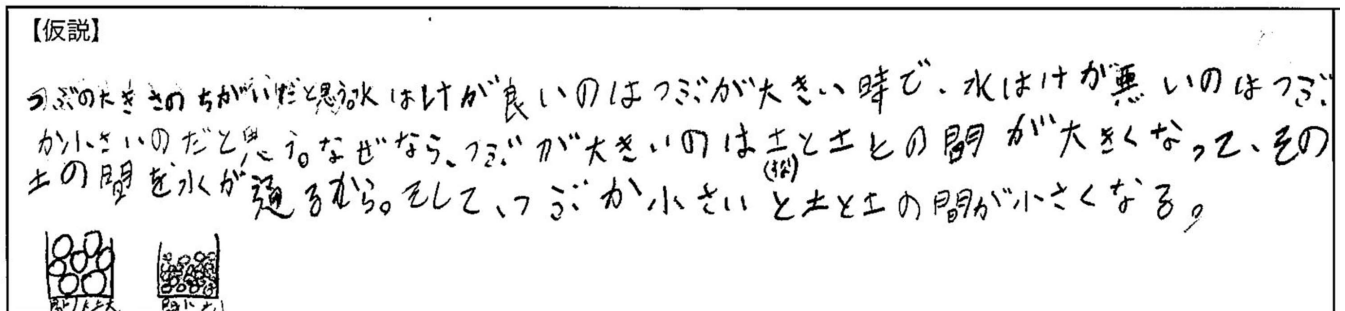 【仮説】
つぶの大きさのちがいだと思う。水はけが良いのはつぶが大きい時で、水はけが悪いのはつぶ
が小さいのだと思う。なぜなら、つぶが大きいのは土と土との間が大きくなって、その
(すな)
土の間を水が通るから。そして、つぶが小さいと土と土の間が小さくなる。